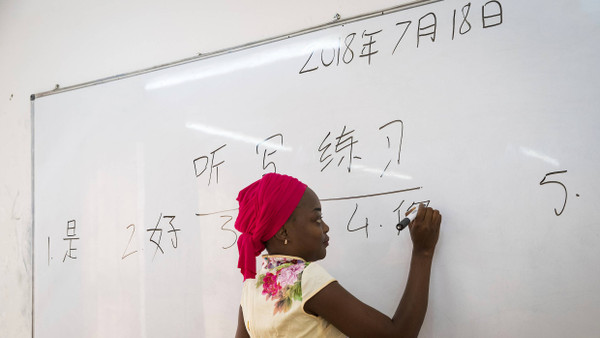 2018年7月18日
听写 练习
1.是 2.好 3 4. 5.